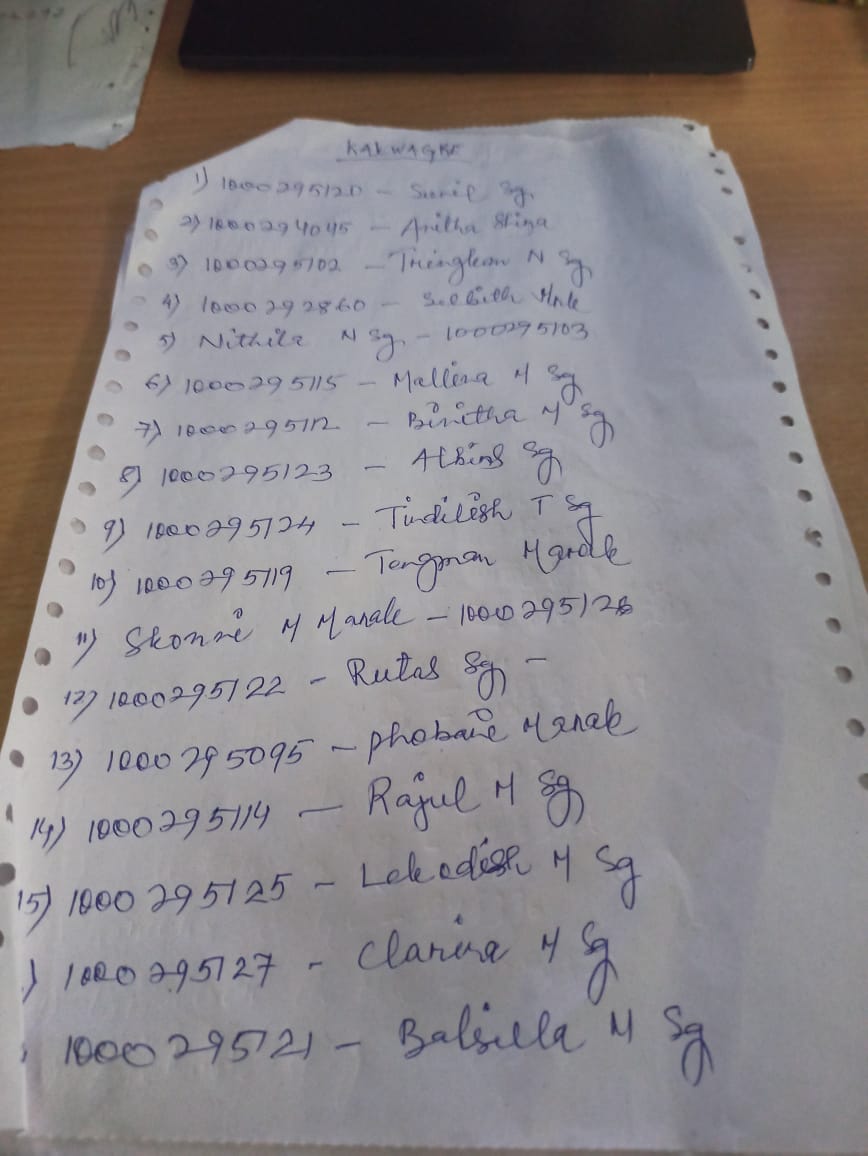 KALWAGRE
1) 1000295120 - Sunil Sg.
2) 1000294045 - Anitha Shira
3) 1000295102 - Tringkam N Sg
4) 1000292860 -
5) Nithila N Sg. - 1000295103
6) 1000295115 - Mallina M Sg
7) 1000295112 - Binitha M Sg
8) 1000295123 - Albins Sg
9) 1000295124 - Tindilish T Sg
10) 1000295119 - Tengman Marak
11) Skonni M Marak - 1000295126
12) 1000295122 - Rutas Sg -
13) 1000295095 - Phobane Marak
14) 1000295114 - Rajul M Sg
15) 1000295125 - Lekadish M Sg
) 1000295127 - Clarina M Sg
1000295121 - Balsilla M Sg